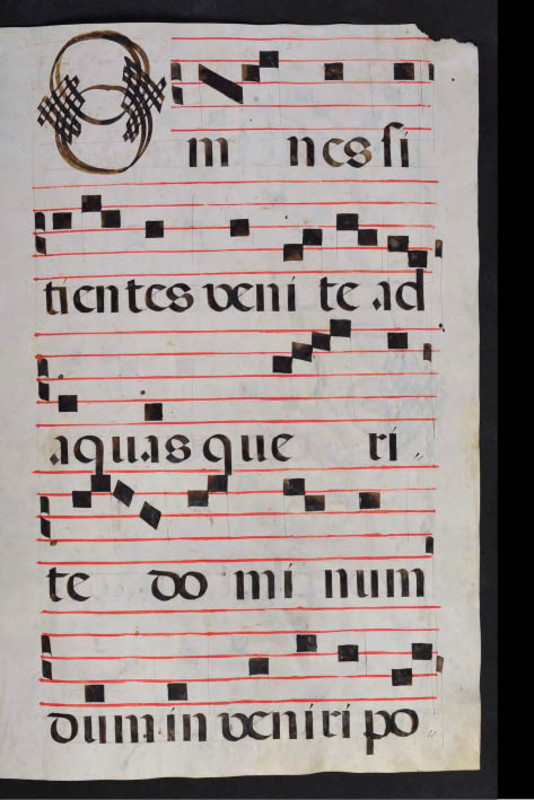 Om nes si
tientes veni te ad
aquas que ri〃
te do mi num
dum in veniri po〃